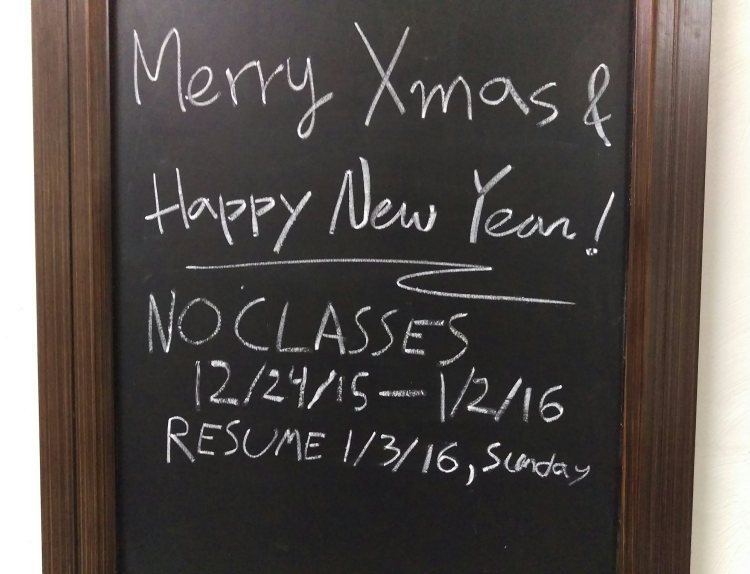 Merry Xmas &
Happy New Year!
NO CLASSES
12/24/15 — 1/2/16
RESUME 1/3/16, Sunday